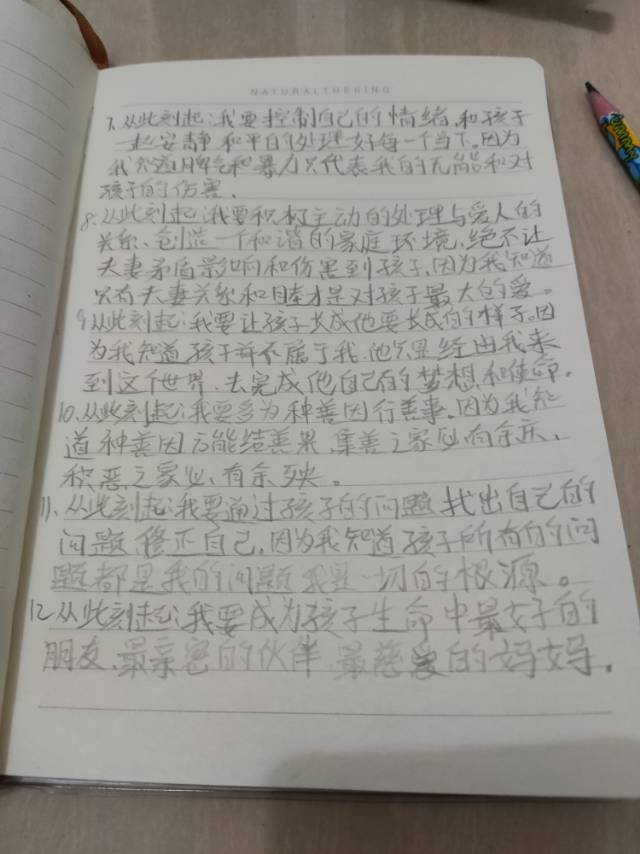 NATURALTHERING
7、从此刻起:我要控制自己的情绪,和孩子
一起安静和平的处理好每一个当下。因为
我知道脾气和暴力只代表我的无能和对
孩子的伤害.
8.从此刻起:我要积极主动的处理与爱人的
关系、创造一个和谐的家庭环境,绝不让
夫妻矛盾影响和伤害到孩子,因为我知道
只有夫妻关系和睦才是对孩子最大的爱。
9从此刻起:我要让孩子长成他要长成的样子。因
为我知道孩子并不属于我,他只是经由我来
到这个世界、去完成他自己的梦想和使命.
10.从此刻起:我要多为种善因行善事。因为我知
道种善因方能结善果,集善之家必有余庆、
积恶之家必有余殃。
11、从此刻起:我要通过孩子的问题找出自己的
问题,修正自己,因为我知道孩子所有的问
题都是我的问题我是一切的根源。
12从此刻起:我要成为孩子生命中最好的
朋友、最亲密的伙伴,最慈爱的妈妈.